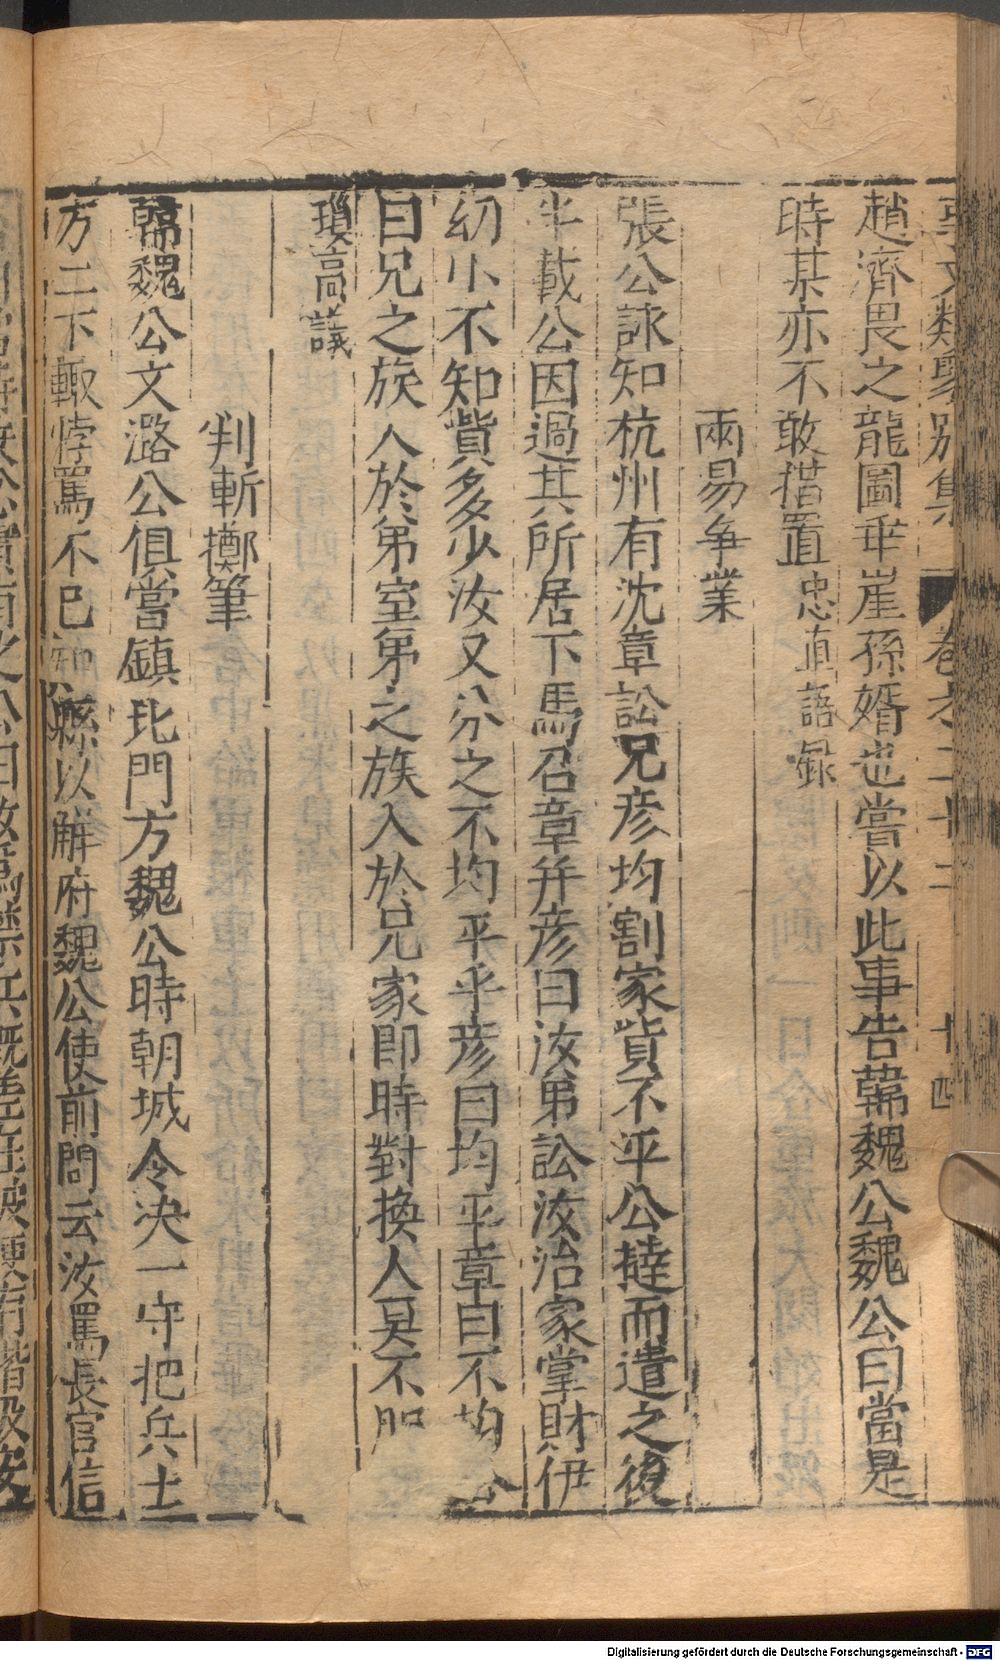 事文類聚別集 卷之二十二 十四
趙濟畏之龍圖乖崖孫婿也嘗以此事告韓魏公魏公曰當是
時某亦不敢措置忠直語録
兩易爭業
張公詠知杭州有沈章訟兄彥均割家貲不平公撻而遣之後
半載公因過其所居下馬召章并彥曰汝弟訟汝治家掌財伊
幼小不知貲多少汝又分之不均平乎彥曰均平章曰不均公
曰兄之族入於弟室弟之族入於兄家即時對換人莫不服
瑣高議
判斬擲筆
韓魏公文潞公俱嘗鎮北門方魏公時朝城令决一守把兵士
方二下輙悖罵不已知縣以解府魏公使前問云汝罵長官信
Digitalisierung gefördert durch die Deutsche Forschungsgemeinschaft - DFG